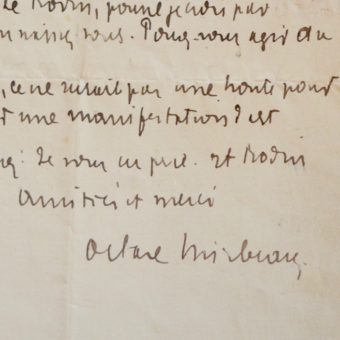 de Rodin, pour
vous. Pouvez vous agir au
, ce ne serait pas une honte pour
une manifestation d'est
Je vous en prie. et Rodin
Amitiés et merci
Octave Mirbeau.